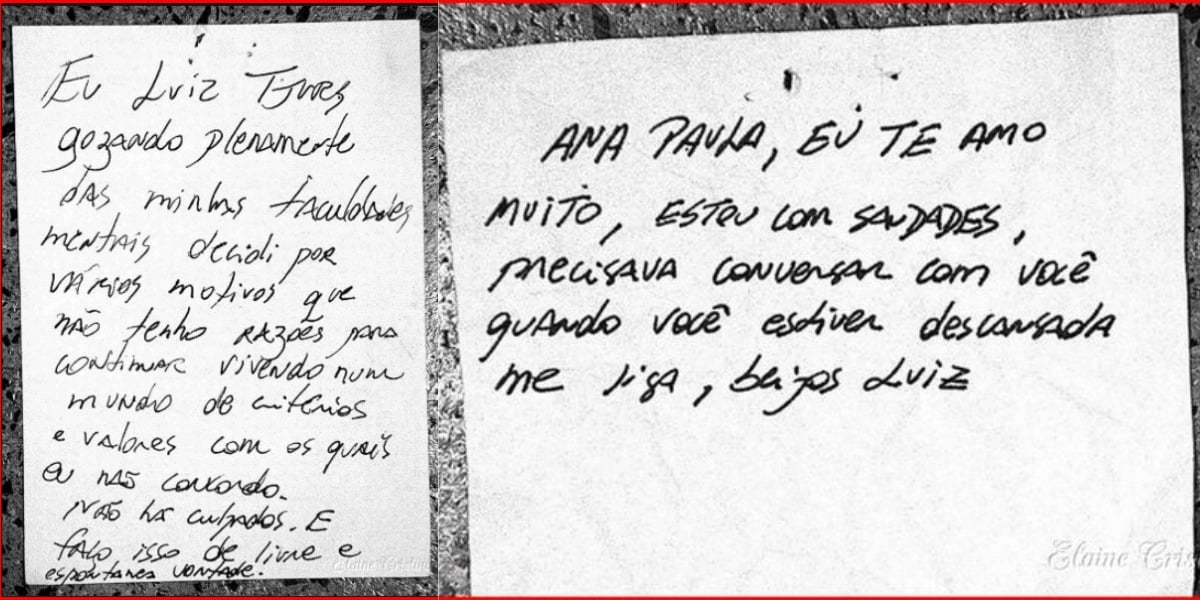 Eu Luiz Tjurs
gozando plenamente
das minhas faculdades
mentais decidi por
vários motivos que
não tenho razões para
continuar vivendo num
mundo de critérios
e valores com os quais
eu não concordo.
Não há culpados. E
falo isso de livre e
espontanea vontade.
Elaine Cristina
ANA PAULA, EU TE AMO
MUITO, ESTOU COM SAUDADES,
precisava conversar com você
quando você estiver descansada
me liga, beijos Luiz
Elaine Cris